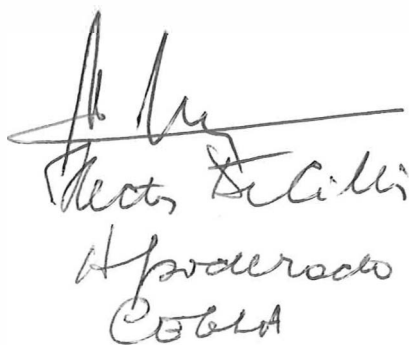 Hector De Cillis
Apoderado
COELSA